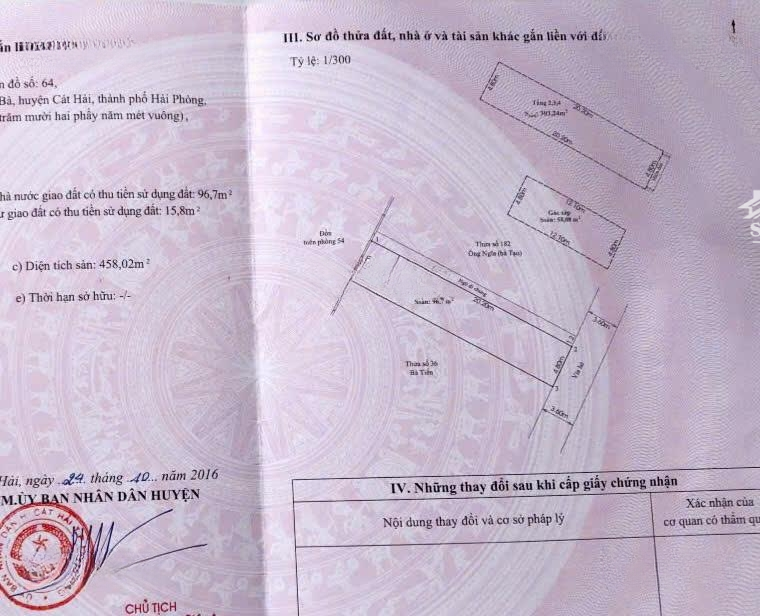 n đồ số: 64,
Bà, huyện Cát Hải, thành phố Hải Phòng,
trăm mười hai phẩy năm mét vuông),
hà nước giao đất có thu tiền sử dụng đất: 96,7m²
ư giao đất có thu tiền sử dụng đất: 15,8m²
c) Diện tích sàn: 458,02m²
e) Thời hạn sở hữu: -/-
Hải, ngày 24. tháng .10... năm 2016
M.ỦY BAN NHÂN DÂN HUYỆN
CHỦ TỊCH
III. Sơ đồ thửa đất, nhà ở và tài sản khác gắn liền với đấ
Tỷ lệ: 1/300
4.80m
Tầng 2,3,4
20.90m
20.90m
4.80m
4.80m
12.10m
Gác xép
12.10m
4.80m
Đồn
biên phòng 54
Thửa số 182
Ông Nghĩa (bà Tạo)
Ngõ đi chung
20.20m
Ssàn: 96,7 m²
1
2
3
4.80m
3.60m
Vỉa hè
3.60m
Thửa số 36
Bà Tiến
IV. Những thay đổi sau khi cấp giấy chứng nhận
Nội dung thay đổi và cơ sở pháp lý
Xác nhận của
cơ quan có thẩm qu